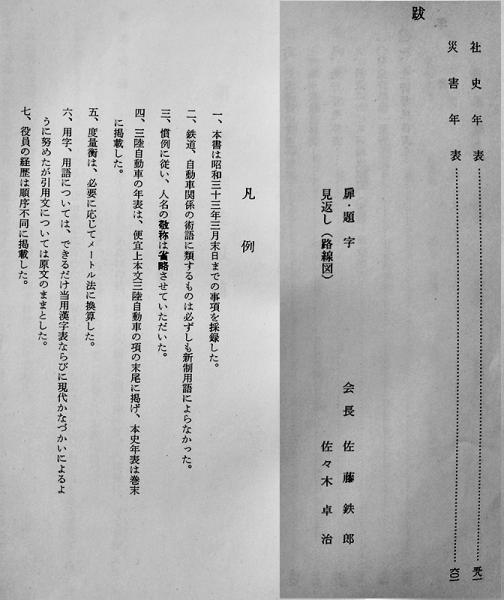 社史年表
災害年表
跋
扉・題字 会長 佐藤鉄郎
見返し（路線図） 佐々木卓治
凡例
一、本書は昭和三十三年三月末日までの事項を採録した。
二、鉄道、自動車関係の術語に類するものは必ずしも新制用語によらなかった。
三、慣例に従い、人名の敬称は省略させていただいた。
四、三陸自動車の年表は、便宜上本文三陸自動車の項の末尾に掲げ、本史年表は巻末
に掲載した。
五、度量衡は、必要に応じてメートル法に換算した。
六、用字、用語については、できるだけ当用漢字表ならびに現代かなづかいによるよ
うに努めたが引用文については原文のままとした。
七、役員の経歴は順序不同に掲載した。